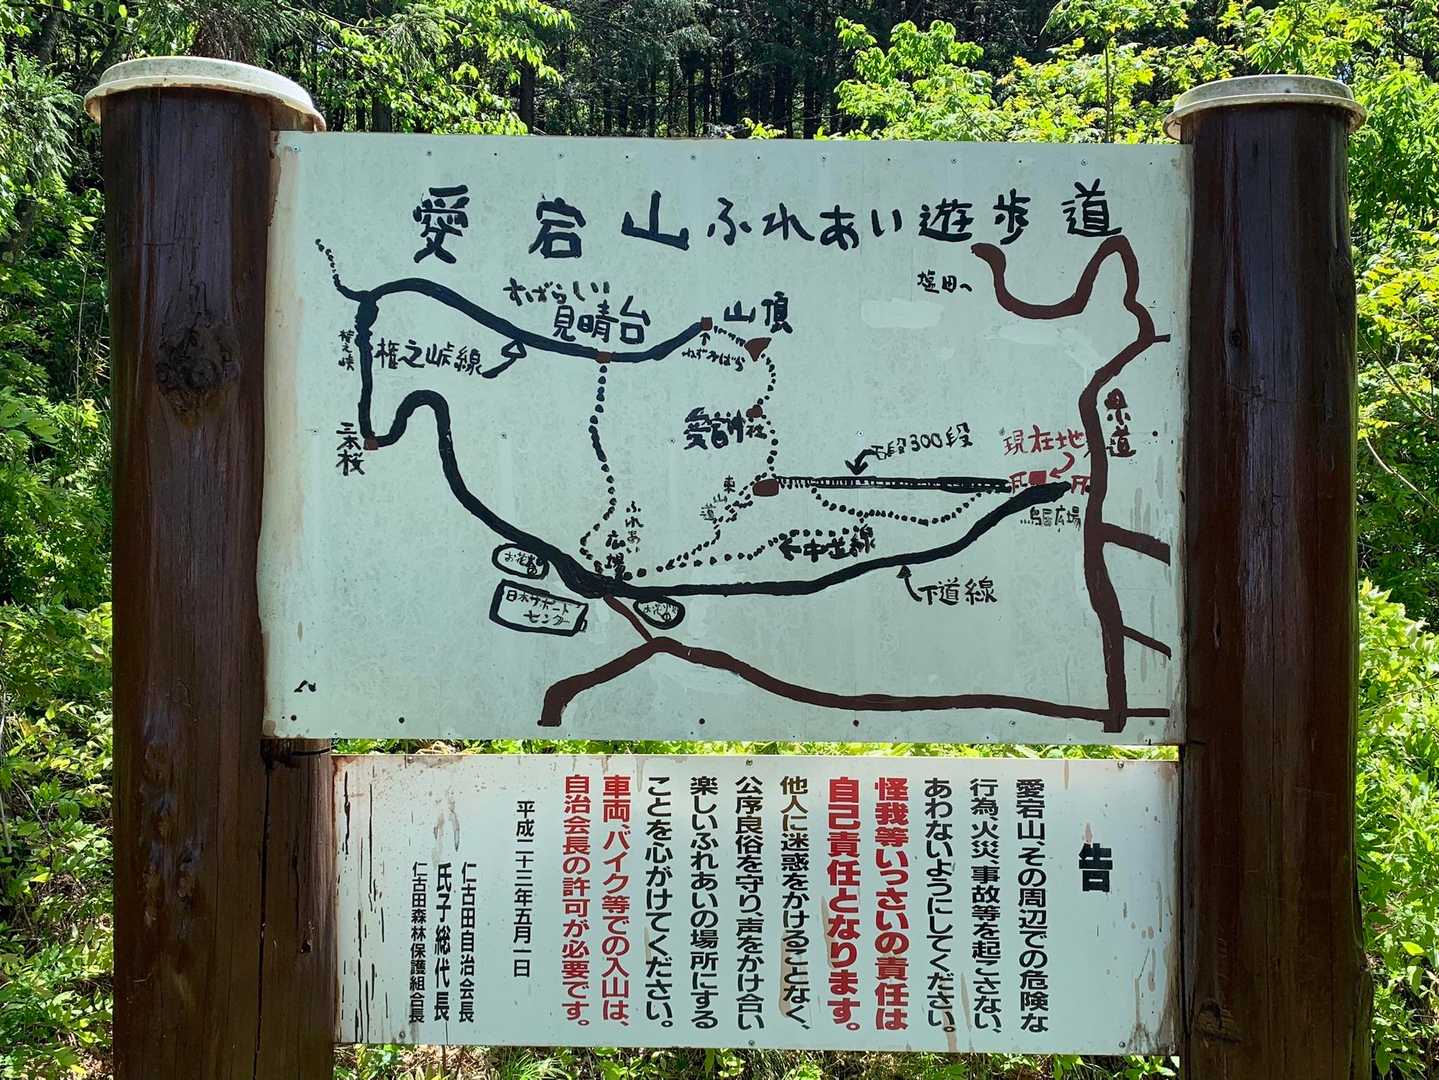 愛宕山ふれあい遊歩道
塩田へ
すばらしい
見晴台
山頂
ねずみばら
権之峠
権之峠線
三本桜
愛宕神社
石段300段
現在地
県道
鳥居広場
東山道
ふれあい
広場
中道線
下道線
お花畑
お花畑
日本サポート
センター
告
愛宕山、その周辺での危険な
行為、火災、事故等を起こさない、
あわないようにしてください。
怪我等いっさいの責任は
自己責任となります。
他人に迷惑をかけることなく、
公序良俗を守り、声をかけ合い
楽しいふれあいの場所にする
ことを心がけてください。
車両、バイク等での入山は、
自治会長の許可が必要です。
平成二十三年五月一日
仁古田自治会長
氏子総代長
仁古田森林保護組合長